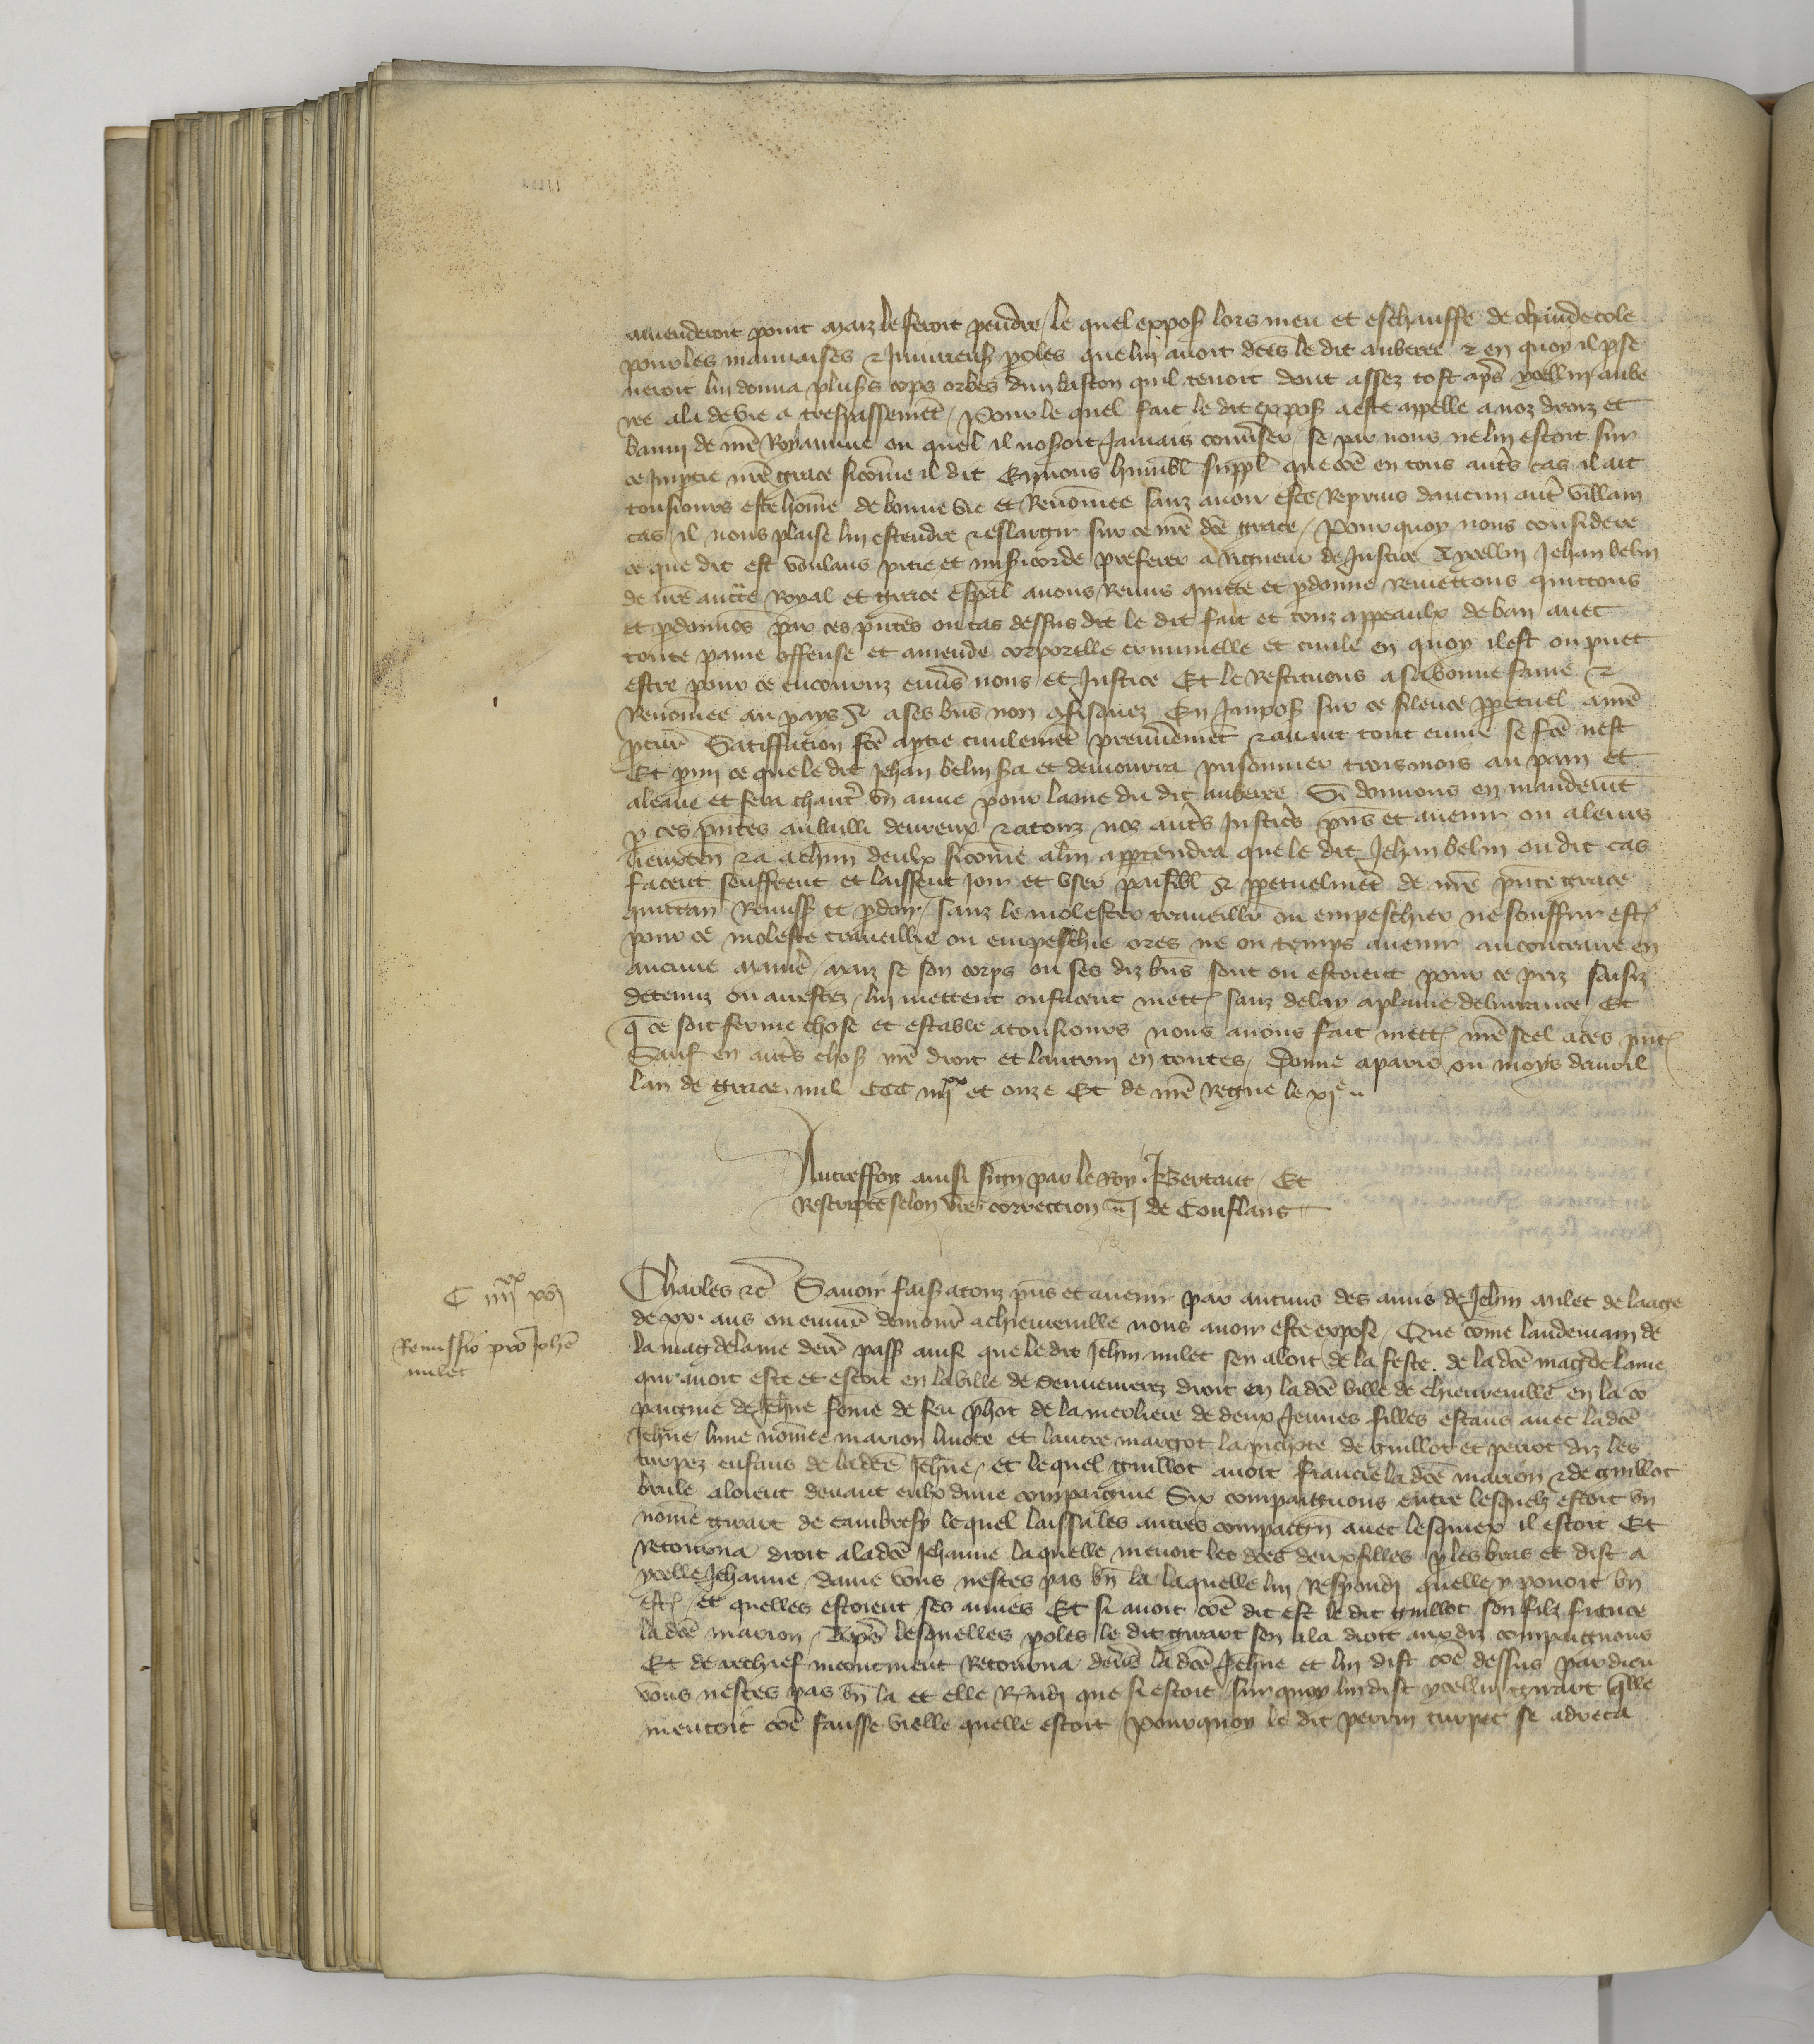 amenderoit point maiz le feroit pendre / le quel expos lors meu et eschauffe de chaude cole
pour les mauuaises & Iniureus poles que lui auoit dces le dit auberee & en quoy il pse
ueroit lui donna plus's cops orbes dun baston quil tenoit dont assez tost apres ycellui aube
ree ala de vie a trespassement / Pour le quel fait le dit expos a este appelle a noz droiz et
banni de nre Royaume ou quel il noseroit Jamais conuser / se par nous ne lui estoit sur
ce Impartie nre grace sicome il dit En nous humbl suppl que coe en tous autres cas il ait
tousiours este home de bonne vie et Renomee sanz auoir este Repris daucun autre villain
cas / il nous plaise lui estendre & eslargir sur ce nre dce grace / Pour quoy nous considere
ce que dit est voulans pitie et misicorde preferer a Rigueur de Justice A ycellui Jehan belin
de nre aucte Royal et grace espal auons Remis quicte et pdonne remettons quictons
et pdonnos par ces pntes ou cas dessus dit le dit fait et touz appeaulx de ban auec
toute paine offense et amende corporelle criminelle et ciuile en quoy il est ou puet
estre pour ce encouruz enuers nous et Justice Et le Restituons a sa bonne fame &
Renomee au pays & a ses bns non confisquez En Impos sur ce silence ppetuel a nre
pcur Satiffacion fce a ptie ciuilement premierement & auant tout euure se fce nest
Et pmi ce que le dit Jehan belin sera et demourra prisonnier trois mois au pain et
a leaue et fera chanter vn anne pour lame du dit auberee Si donnons en mandement
p ces pntes au bailli deureux & a touz noz autres Justiciers pns et auenir ou a leurs
lieuxten & a achun deulx sicome a lui appertendra que le dit Jehan belin ou dit cas
facent seuffrent et laissent joir et vser paisibl & ppetuelment de nre pnte grace
quittan Remiss et pdon / sanz le molester traueillir ou empeschier ne souffrir est
pour ce moleste traueillie ou empeschie ores ne ou temps auenir au contraire en
aucune maniere / maiz se son corps ou ses diz bns sont ou estoient pour ce priz saisiz
detenuz ou arrestez / lui mettent ou facent mett sanz delay a plaine deliurance Et
q ce soit ferme chose et estable a tousiours nous auons fait mett nre seel a ces pnt
Sauf en autres choses nre droit et lautrui en toutes / Donne a paris ou moys dauril
lan de grace mil CCC iiijxx et onze Et de nre Regne le xje
Autreffoiz ainsi sign par le Roy . J Bertaut / Et
Rescripte selon vre correction J de Conflans
C iiijxx xvj
Remissio pro Johe
milet
Charles &c Sauoir faisons a touz pns et auenir par aucuns des amis de Jehin milet de laage
de xx. ans ou enuiron demourant a chieureuille nous auoir este expose / Que come landemain de
la magdelaine deren pass ainsi que le dit Jehin milet sen aloit de la feste . de la dce magdelaine
qui auoit este et estoit en la ville de Dennemerez droit en la dce ville de chieureuille en la co
paignie de Jehne feme de feu phot de la merliere de deux Jeunes filles estans auec la dce
Jehne / lune nomee marion liuote et lautre margot la pichote de guillot et perrot diz les
turpez enfans de la dce Jehne / et lequel guillot auoit fiancie la dce marion & de guillot
brule aloient deuant eulx dune compaignie Six compaignons entre lesquelz estoit vn
nome girart de cambresy le quel laissa les autres compaign auec lesquiex il estoit Et
retourna droit a la dce Jehanne laquelle menoit les dces deux filles p les bras et dist a
ycelle Jehanne / dame vous nestes pas bn la / laquelle lui respondi quelle y pouoit bn
est / et quelles estoient ses amies Et si auoit coe dit est le dit guillot son filz fiance
la dce marion / Apres lesquelles poles le dit girart sen ala droit aux diz compaignons
Et de rechief incontinent Retourna deuers la dce Jehne et lui dist coe dessus par dieu
vous nestes pas bn la et elle Rndi que si estoit / sur quoy lui dist ycellui girart qlle
mentoit coe fausse vielle quelle estoit / Pourquoy le dit perrin turpet se adreca